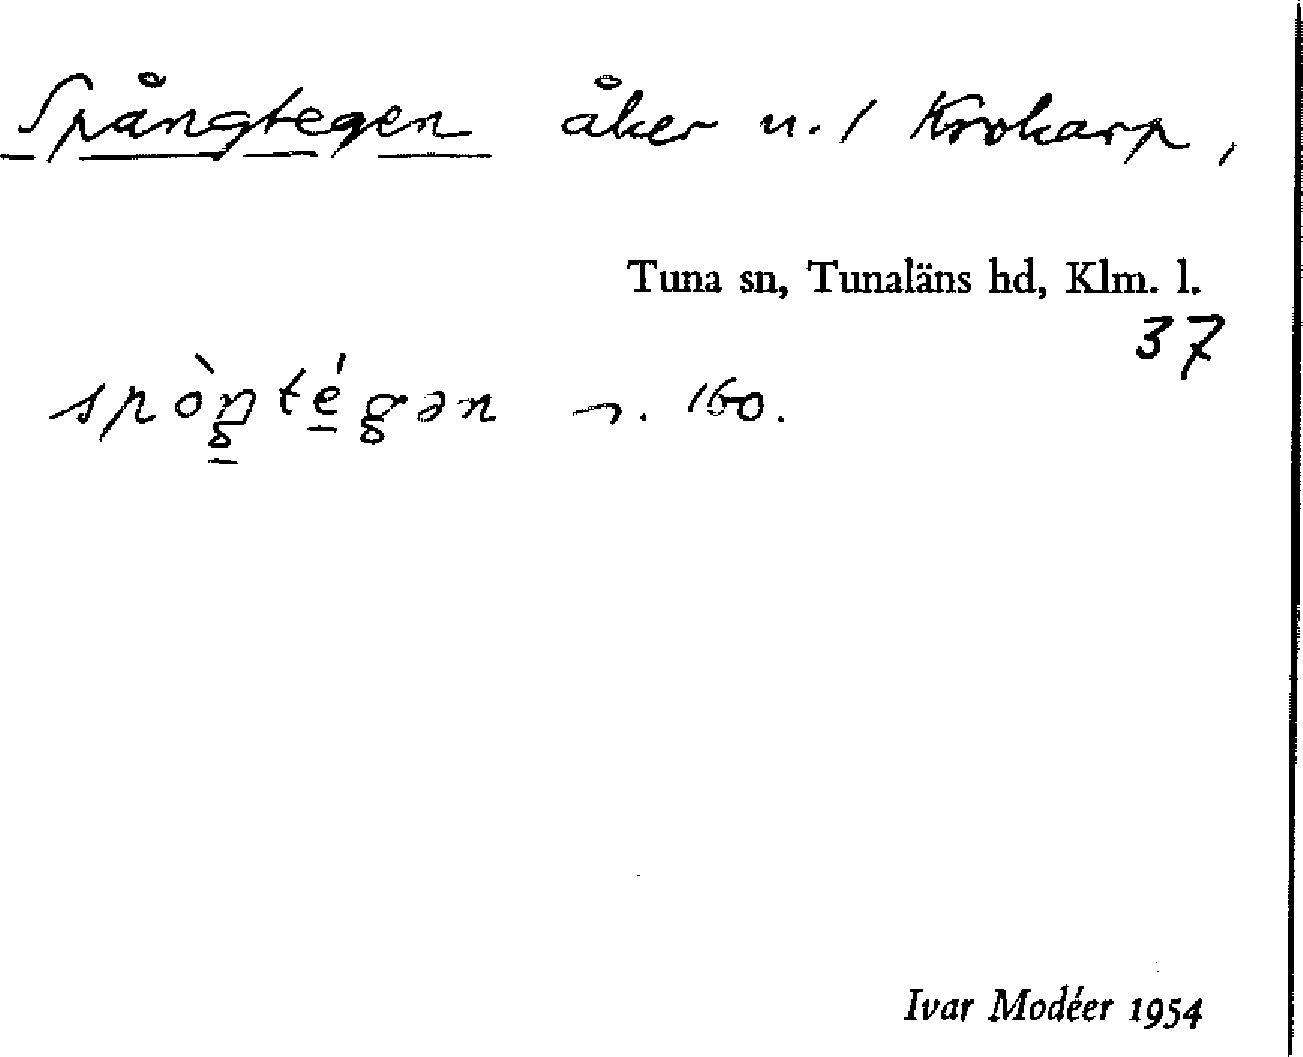 Spångtegen åker u. / Krokarp,
Tuna sn, Tunaläns hd, Klm. l.
37
spòŋtégən 160.
Ivar Modéer 1954